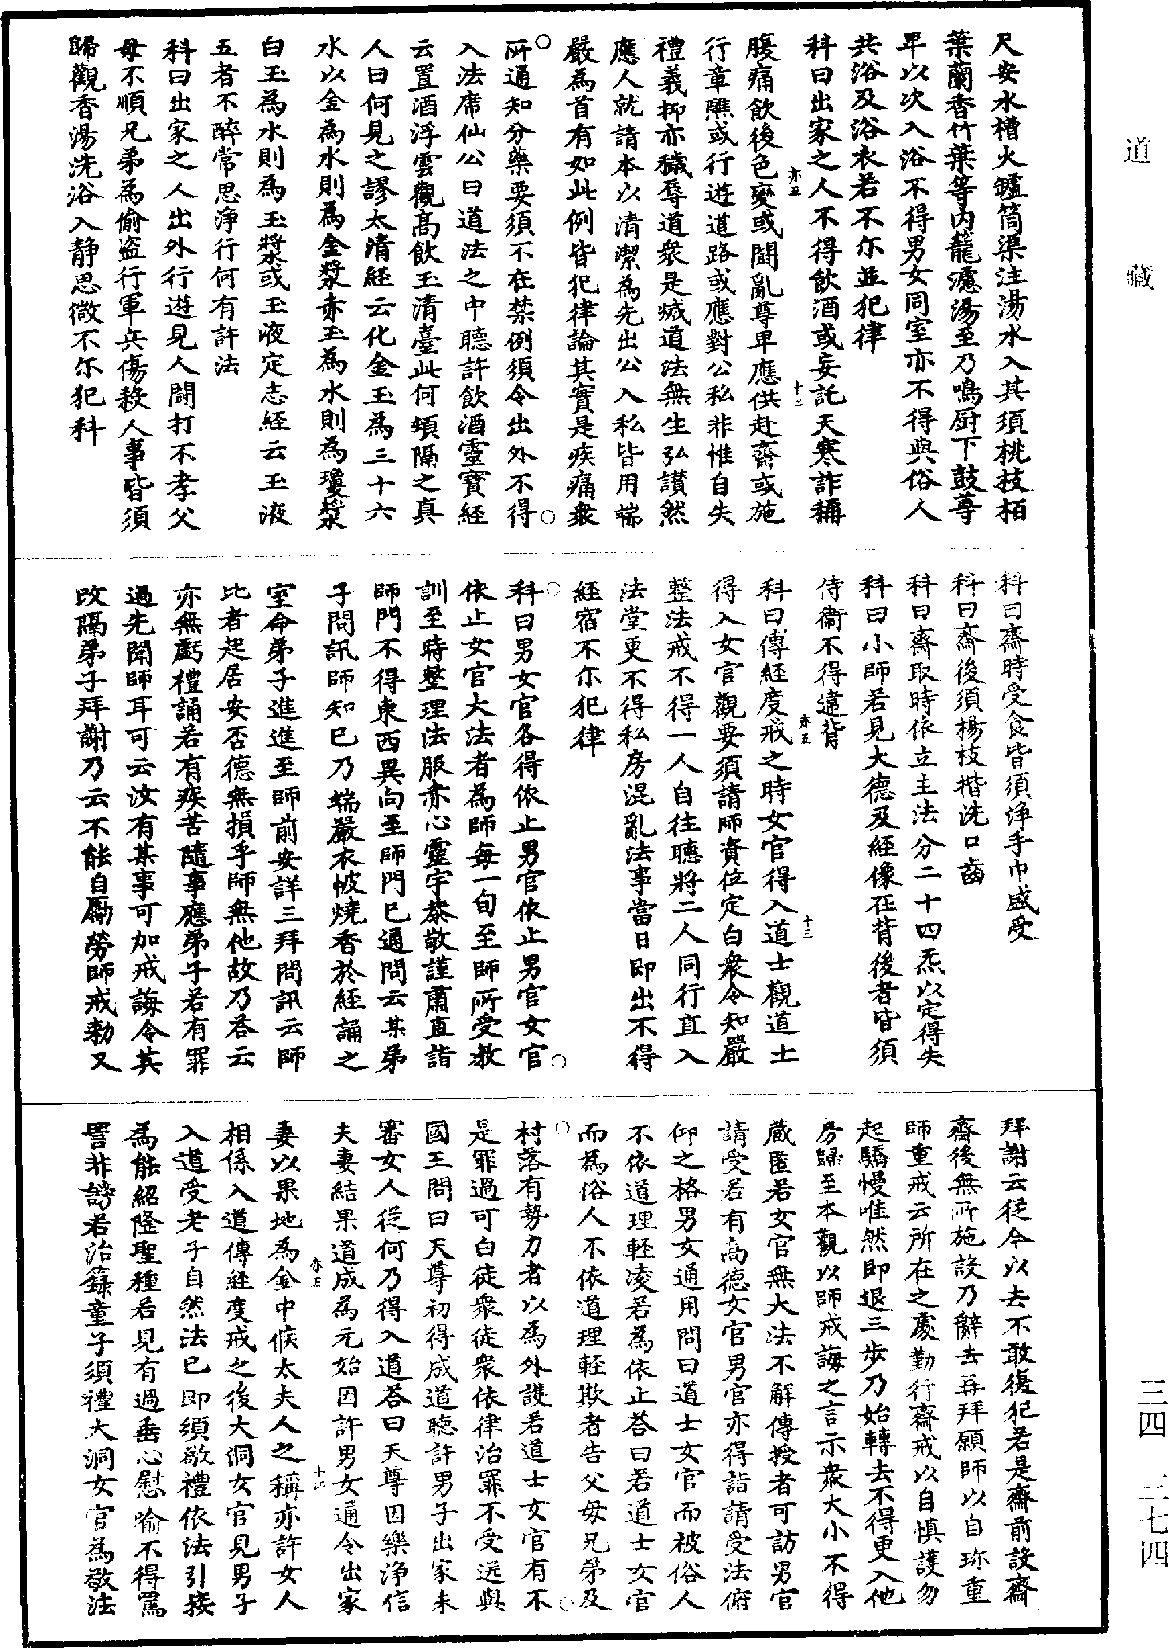 尺安水槽火鑪筒渠注湯水入其須桃枝栢
葉蘭香竹葉等內籠漉湯至乃鳴厨下鼓尊
卑以次入浴不得男女同室亦不得與俗人
共浴及浴衣若不尔並犯律
科曰出家之人不得飲酒或妄託天寒詐稱
腹痛飲後色變或鬪亂尊卑應供赴齋或施
行章醮或行遊道路或應對公私非惟自失
禮義抑亦穢辱道衆是滅道法無生弘讃然
應人就請本以清潔為先出公入私皆用端
嚴為首有如此例皆犯律論其實是疾痛衆
所通知分藥要須不在禁例須令出外不得
入法席仙公曰道法之中聽許飲酒靈寳經
云置酒浮雲觀高飲玉清臺此何頓隔之真
人曰何見之謬太清經云化金玉為三十六
水以金為水則為金漿赤玉為水則為瓊漿
白玉為水則為玉漿或玉液定志經云玉液
五者不醉常思淨行何有許法
科曰出家之人出外行遊見人鬪打不孝父
母不順兄弟為偷盗行軍兵傷殺人事皆須
歸觀香湯洗浴入靜思微不尔犯科
科曰齋時受食皆須淨手巾盛受
科曰齋後須楊枝楷洗口齒
科曰齋取時依立主法分二十四炁以定得失
科曰小師若見大德及經像在背後者皆須
侍衞不得違背
科曰傳經度戒之時女官得入道士觀道士
得入女官觀要須請師資位定白衆令知嚴
整法戒不得一人自往聽將二人同行直入
法堂更不得私房混亂法事當日即出不得
經宿不尔犯律
科曰男女官各得依止男官依止男官女官
依止女官大法者為師每一旬至師所受教
訓至時整理法服亦心靈宇恭敬謹肅直詣
師門不得東西異向至師門已通問云某弟
子問訊師知已乃端嚴衣帔燒香於經誦之
室命弟子進進至師前安詳三拜問訊云師
比者起居安否德無損乎師無他故乃荅云
亦無虧禮誦若有疾苦隨事應弟子若有罪
過先聞師耳可云汝有某事可加戒誨令其
改隔弟子拜謝乃云不能自勵勞師戒勑又
拜謝云從今以去不敢復犯若是齋前設齋
齋後無所施設乃辭去再拜願師以自珎重
師重戒云所在之處勤行齋戒以自慎護勿
起驕慢唯然即退三步乃始轉去不得更入他
房歸至本觀以師戒誨之言示衆大小不得
蔵匿若女官無大法不解傳授者可訪男官
請受若有高德女官男官亦得詣請受法俯
仰之格男女通用問曰道士女官而被俗人
不依道理輕凌若為依止荅曰若道士女官
而為俗人不依道理輕欺者告父母兄弟及
村落有勢力者以為外護若道士女官有不
是罪過可白徒衆徒衆依律治罪不受送與
國王問曰天尊初得成道聽許男子出家未
審女人從何乃得入道荅曰天尊因樂淨信
夫妻結果道成為元始因許男女通令出家
妻以果地為金中候太夫人之稱亦許女人
相係入道傳經度戒之後大洞女官見男子
入道受老子自然法已即須敬禮依法引接
為能紹隆聖種若見有過垂心慰喻不得罵
詈非謗若治籙童子須禮大洞女官為敬法
道
藏
三四
二七四